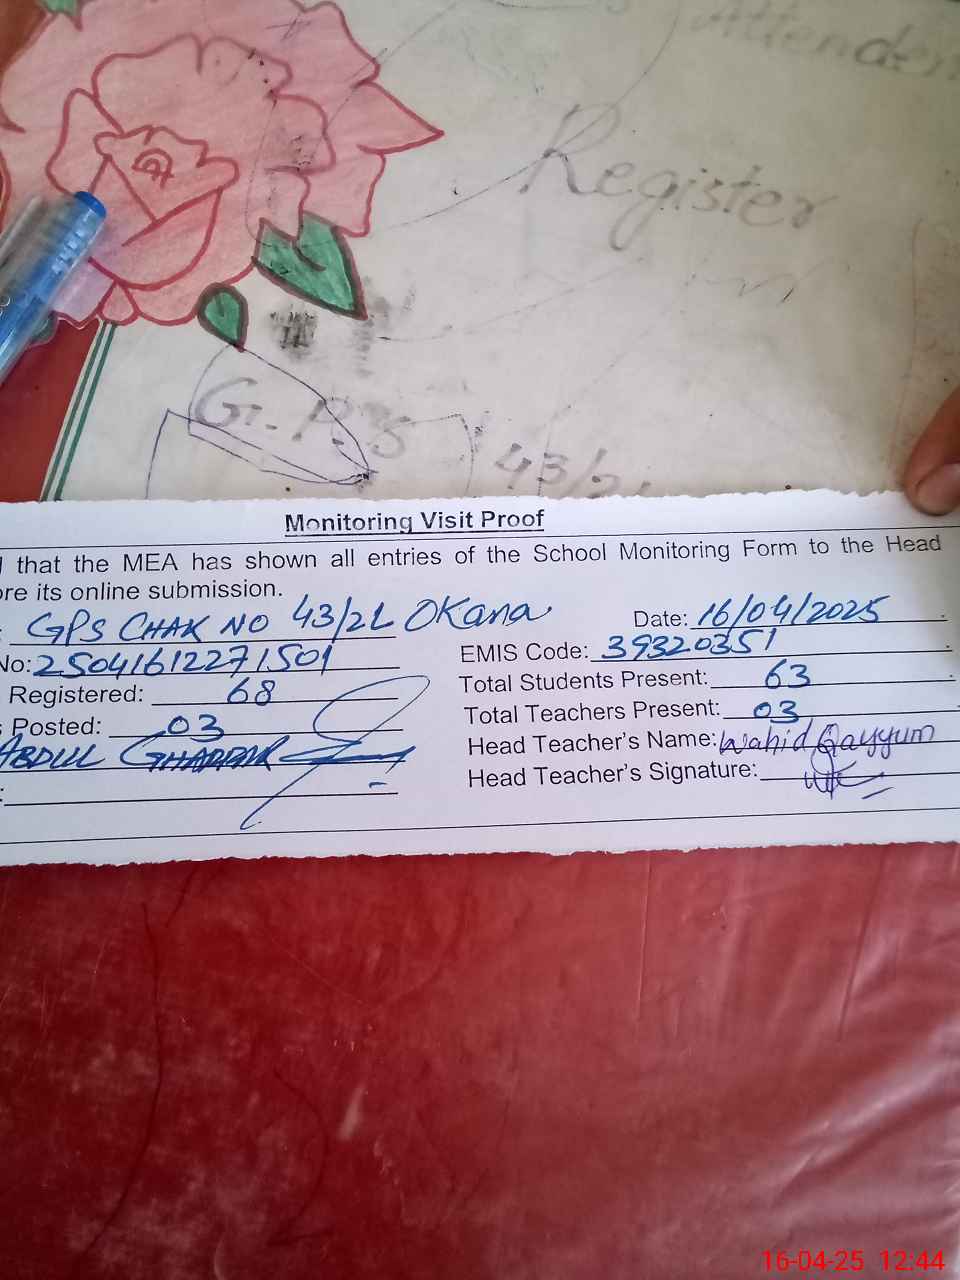 Attenden
Register
G.P.S
43/2L
Monitoring Visit Proof
that the MEA has shown all entries of the School Monitoring Form to the Head
ore its online submission.
: GPS CHAK NO 43/2L OKara Date: 16/04/2025
No: 25041612271501 EMIS Code: 39320351
Registered: 68 Total Students Present: 63
s Posted: 03 Total Teachers Present: 03
ABDUL GHAFFAR Head Teacher's Name: Wahid Qayyum
: Head Teacher's Signature:
16-04-25 12:44